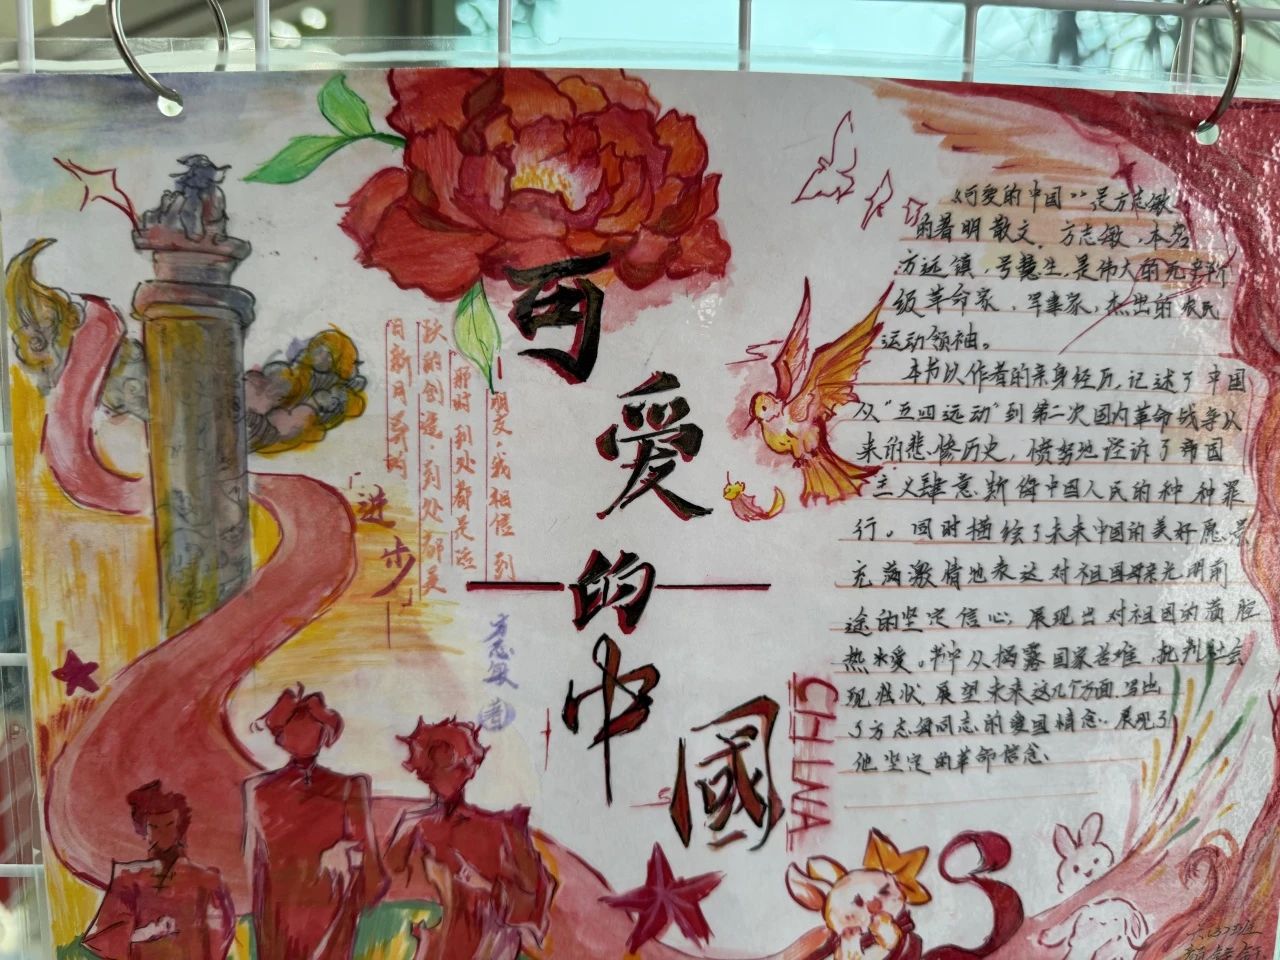 可爱的中國
CHINA
朋友,我相信,到
那时,到处都是活
跃的创造,到处都是
日新月异的
进步
方志敏 著
《可爱的中国》是方志敏
的著明散文。方志敏,本名
方远镇,号慧生,是伟大的无产阶
级革命家,军事家,杰出的农民
运动领袖。
本书以作者的亲身经历,记述了中国
从“五四运动”到第二次国内革命战争以
来的悲惨历史,愤努地控诉了帝国
主义肆意断侮中国人民的种种罪
行。同时描绘了未来中国的美好愿景
充满激情地表达对祖国母亲光明前
途的坚定信心,展现出对祖国的满腔
热爱。书中从揭露国家苦难,批判社会
现状,展望未来这几个方面,写出
了方志敏同志的爱国情怀,展现了
他坚定的革命信念